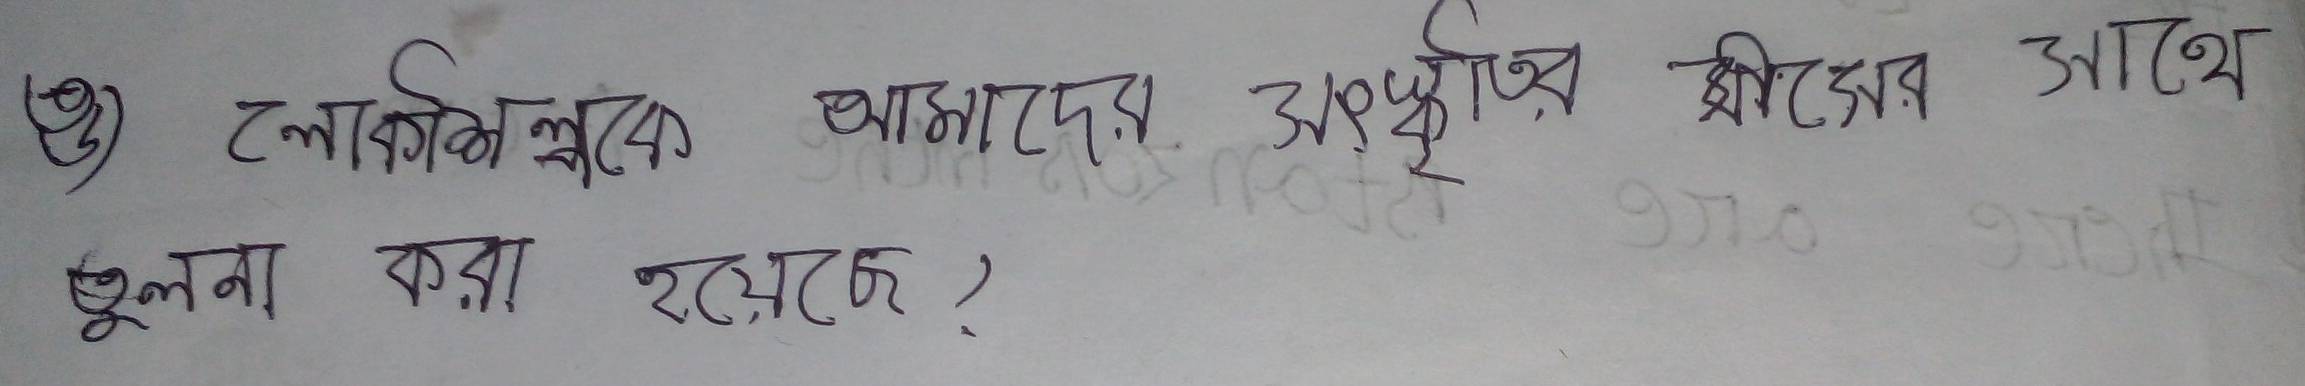 ঙ) লোকশিল্পকে আমাদের সংস্কৃতির কীসের সাথে
তুলনা করা হয়েছে?